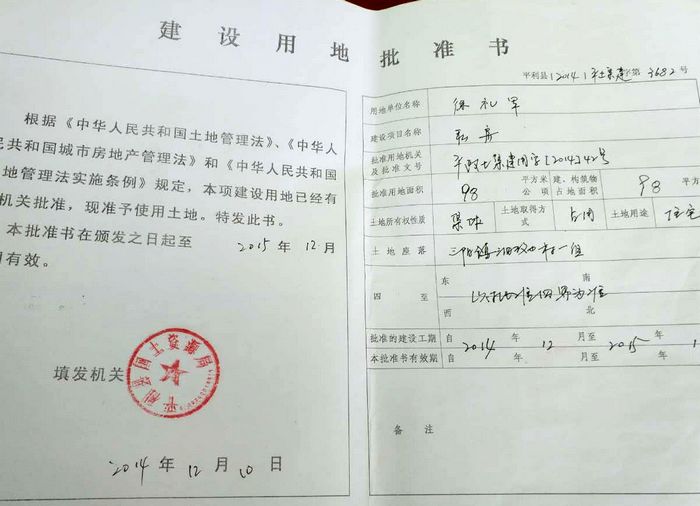 建设用地批准书
根据《中华人民共和国土地管理法》、《中华人
民共和国城市房地产管理法》和《中华人民共和国
地管理法实施条例》规定,本项建设用地已经有
机关批准,现准予使用土地。特发此书。
本批准书在颁发之日起至 2015 年 12 月
有效。
填发机关
平利县国土资源局
2014 年 12 月 10 日
平利县(2014)平土集建字第 3682 号
用地单位名称 徐礼军
建设项目名称
批准用地机关及批准文号 平政土集建用字[2014]42号
批准用地面积 98 平方米 公顷 建、构筑物占地面积 98 平方
土地所有权性质 集体 土地取得方式 占用 土地用途 住宅
土地座落 三阳镇 村一组
四至 东 南 西 北 以批准四界为准
批准的建设工期 自 2014 年 12 月至 2015 年 1
本批准书有效期 自 年 月至 年
备注